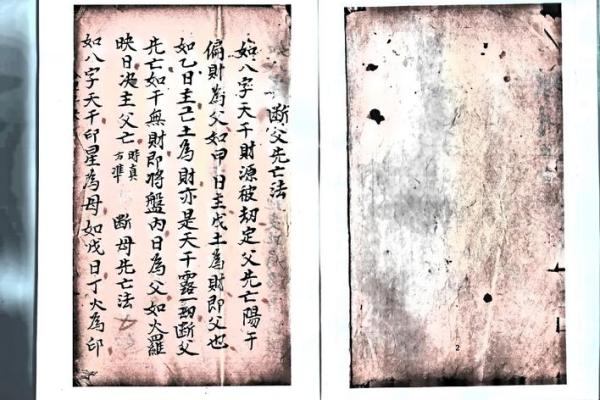 断父先亡法
如八字天干財源被刼定父先亡陽干
偏財為父如甲日主戊土為財即父也
如乙日主己土為財亦是天干露一刼断父
先亡如干無財即將盤內日為父如火羅
映日决主父亡時真方準 断母先亡法
如八字天干印星為母如戊日丁火為印
2